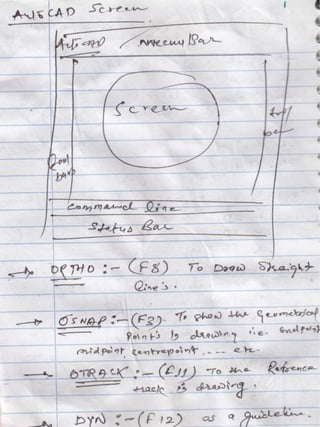 AutoCAD Screen
AutoCAD / Menu Bar
Screen
Tool bar
Tool bar
Command line
Status Bar
→ ORTHO :- (F8) To Draw Straight
line's.
→ OSNAP :- (F3) To show the Geometrical
Point's in drawing i.e. Endpoint
midpoint centrepoint .... etc.
→ OTRACK :- (F11) To the Reference
track is drawing.
→ DYN :- (F12) as a guideline.